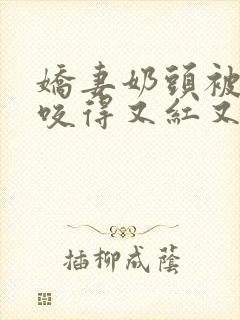 嬌妻奶頭被
咬得又紅又
插柳成蔭